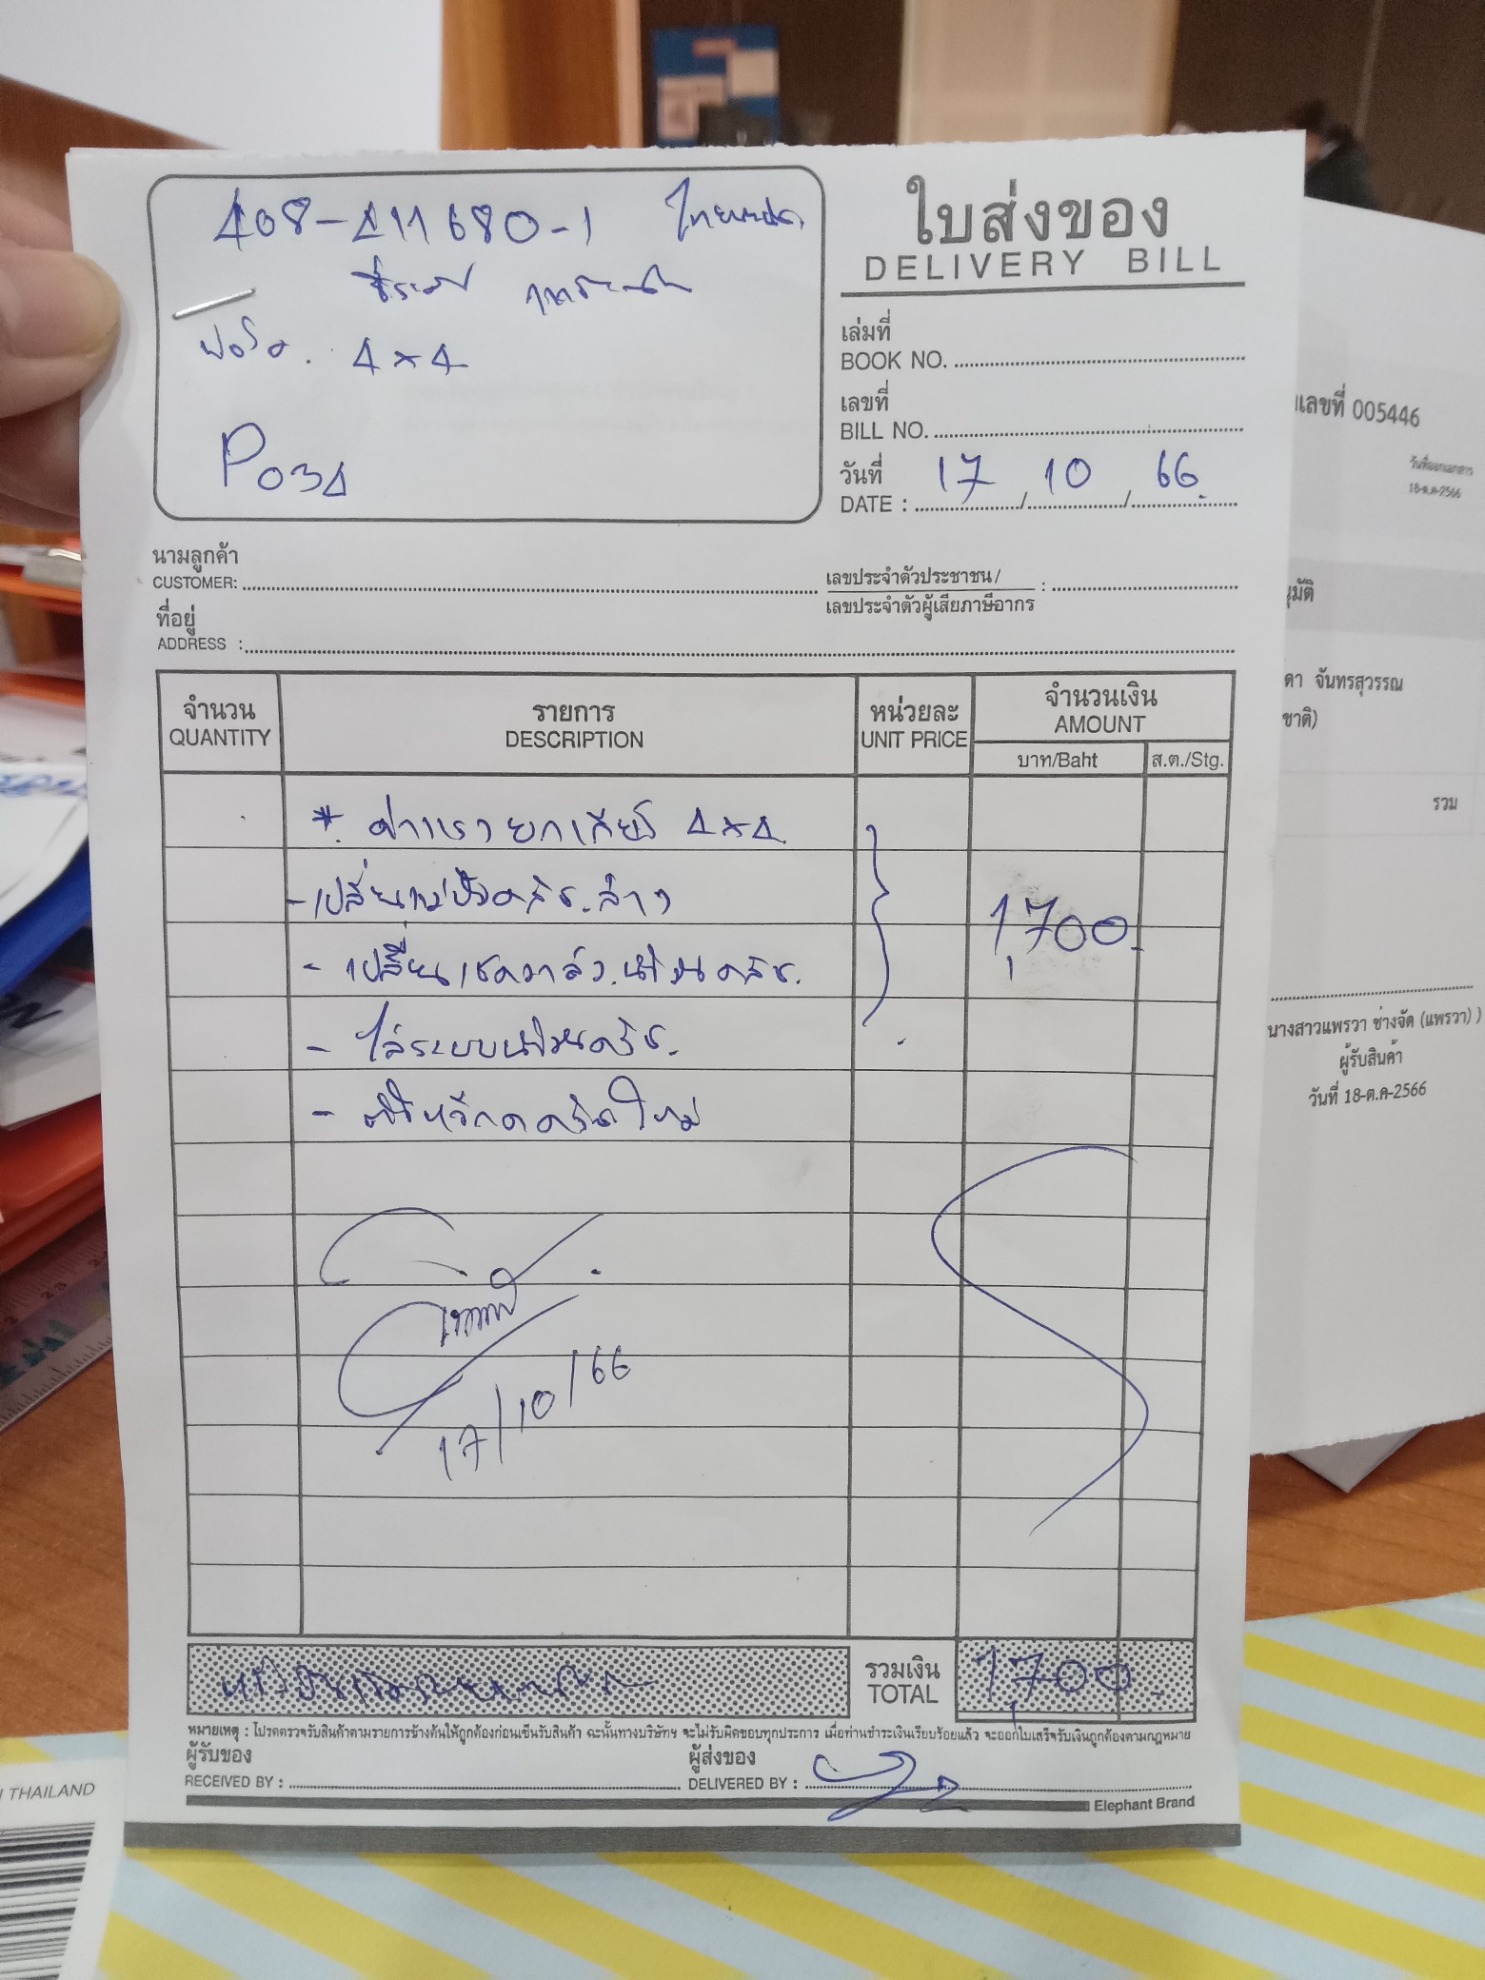 408-411680-1 ไทยพาณิชย์
ฟอร์ด. 4x4
P034
ใบส่งของ
DELIVERY BILL
เล่มที่
BOOK NO.
เลขที่
BILL NO.
วันที่
DATE : 17 / 10 / 66
นามลูกค้า
CUSTOMER:
เลขประจำตัวประชาชน/
เลขประจำตัวผู้เสียภาษีอากร :
ที่อยู่
ADDRESS :
จำนวน รายการ หน่วยละ จำนวนเงิน
QUANTITY DESCRIPTION UNIT PRICE AMOUNT
บาท/Baht ส.ต./Stg.
* ค่าแรงยกเกียร์ 4x4
- เปลี่ยนแม่ปั๊มคลัช.ล่าง
1,700.
- เปลี่ยน น้ำมันคลัช.
- ไล่ระบบน้ำมันคลัช.
- ใหม่
17/10/66
รวมเงิน
TOTAL 1,700.
หมายเหตุ : โปรดตรวจรับสินค้าตามรายการข้างต้นให้ถูกต้องก่อนเซ็นรับสินค้า ฉะนั้นทางบริษัทฯ จะไม่รับผิดชอบทุกประการ เมื่อท่านชำระเงินเรียบร้อยแล้ว จะออกใบเสร็จรับเงินถูกต้องตามกฎหมาย
ผู้รับของ
RECEIVED BY :
ผู้ส่งของ
DELIVERED BY :
Elephant Brand
เลขที่ 005446
วันที่ออกเอกสาร
18-ต.ค-2566
นุมัติ
ดา จันทรสุวรรณ
ชาติ)
รวม
นางสาวแพรวา ช่างจัด (แพรวา) )
ผู้รับสินค้า
วันที่ 18-ต.ค-2566
THAILAND